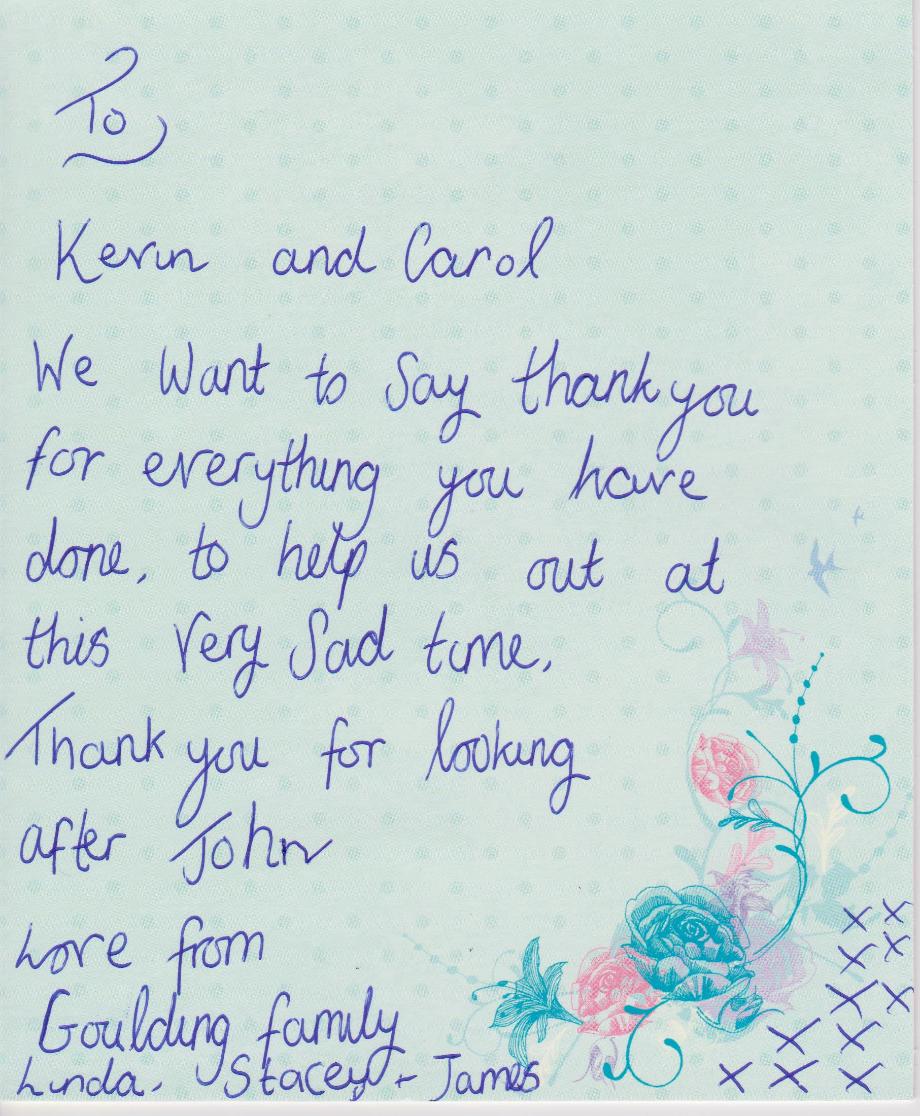 To
Kevin and Carol
We Want to Say thank you
for everything you have
done, to help us out at
this Very Sad time.
Thank you for looking
after John
Love from
Goulding family
Linda, Stacey + James
x x
x x
x x
x x
x x x